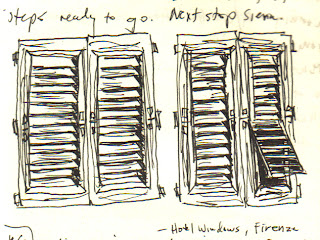 steps ready to go. Next stop Siena.
- Hotel Windows, Firenze